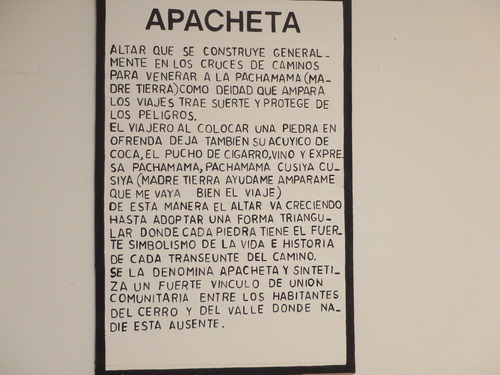 APACHETA
ALTAR QUE SE CONSTRUYE GENERAL-
MENTE EN LOS CRUCES DE CAMINOS
PARA VENERAR A LA PACHAMAMA (MA-
DRE TIERRA) COMO DEIDAD QUE AMPARA
LOS VIAJES TRAE SUERTE Y PROTEGE DE
LOS PELIGROS.
EL VIAJERO AL COLOCAR UNA PIEDRA EN
OFRENDA DEJA TAMBIEN SU ACUYICO DE
COCA, EL PUCHO DE CIGARRO, VINO Y EXPRE.
SA PACHAMAMA, PACHAMAMA CUSIYA CU-
SIYA (MADRE TIERRA AYUDAME AMPARAME
QUE ME VAYA BIEN EL VIAJE)
DE ESTA MANERA EL ALTAR VA CRECIENDO
HASTA ADOPTAR UNA FORMA TRIANGU-
LAR DONDE CADA PIEDRA TIENE EL FUER-
TE SIMBOLISMO DE LA VIDA E HISTORIA
DE CADA TRANSEUNTE DEL CAMINO.
SE LA DENOMINA APACHETA Y SINTETI-
ZA UN FUERTE VINCULO DE UNION
COMUNITARIA ENTRE LOS HABITANTES
DEL CERRO Y DEL VALLE DONDE NA-
DIE ESTA AUSENTE.